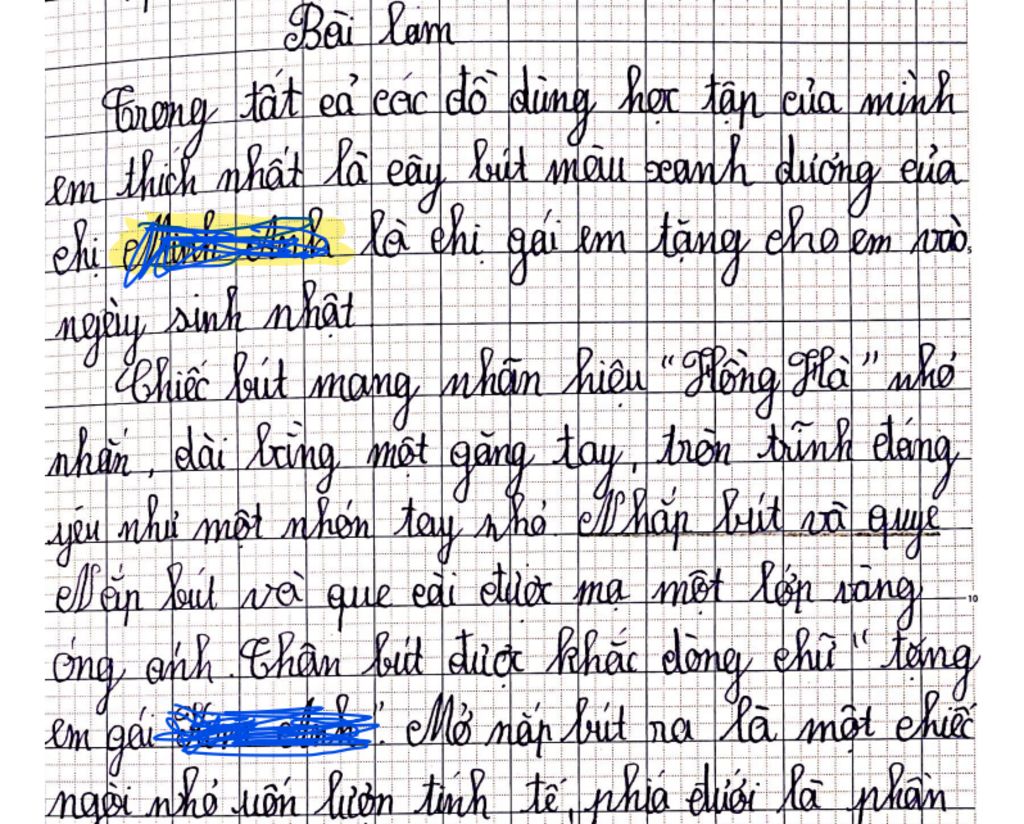 Bài làm
Trong tất cả các đồ dùng học tập của mình
em thích nhất là cây bút màu xanh dương của
chị là chị gái em tặng cho em vào
ngày sinh nhật
Chiếc bút mang nhãn hiệu "Hồng Hà" nhỏ
nhắn, dài bằng một găng tay, tròn trĩnh đáng
yêu như một nhón tay nhỏ Nhắp bút và quye
Nắp bút và que cài được mạ một lớp vàng
óng ánh. Thân bút được khắc dòng chữ "tặng
em gái ". Mở nắp bút ra là một chiếc
ngòi nhỏ uốn lượn tinh tế, phía dưới là phần
10